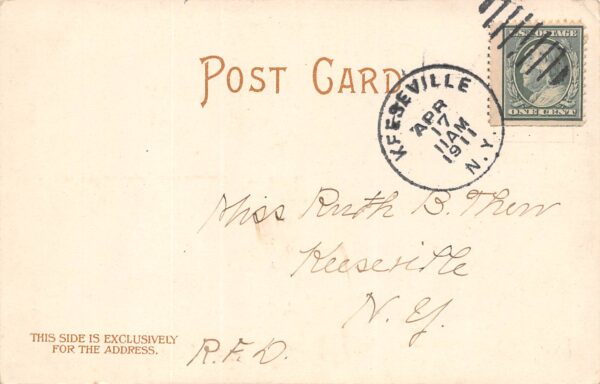 POST CARD
U.S. POSTAGE
ONE CENT
KEESEVILLE
APR
17
11AM
1911
N.Y.
Miss Ruth B. Thew
Keeseville
N. Y.
THIS SIDE IS EXCLUSIVELY
FOR THE ADDRESS.
R.F.D.